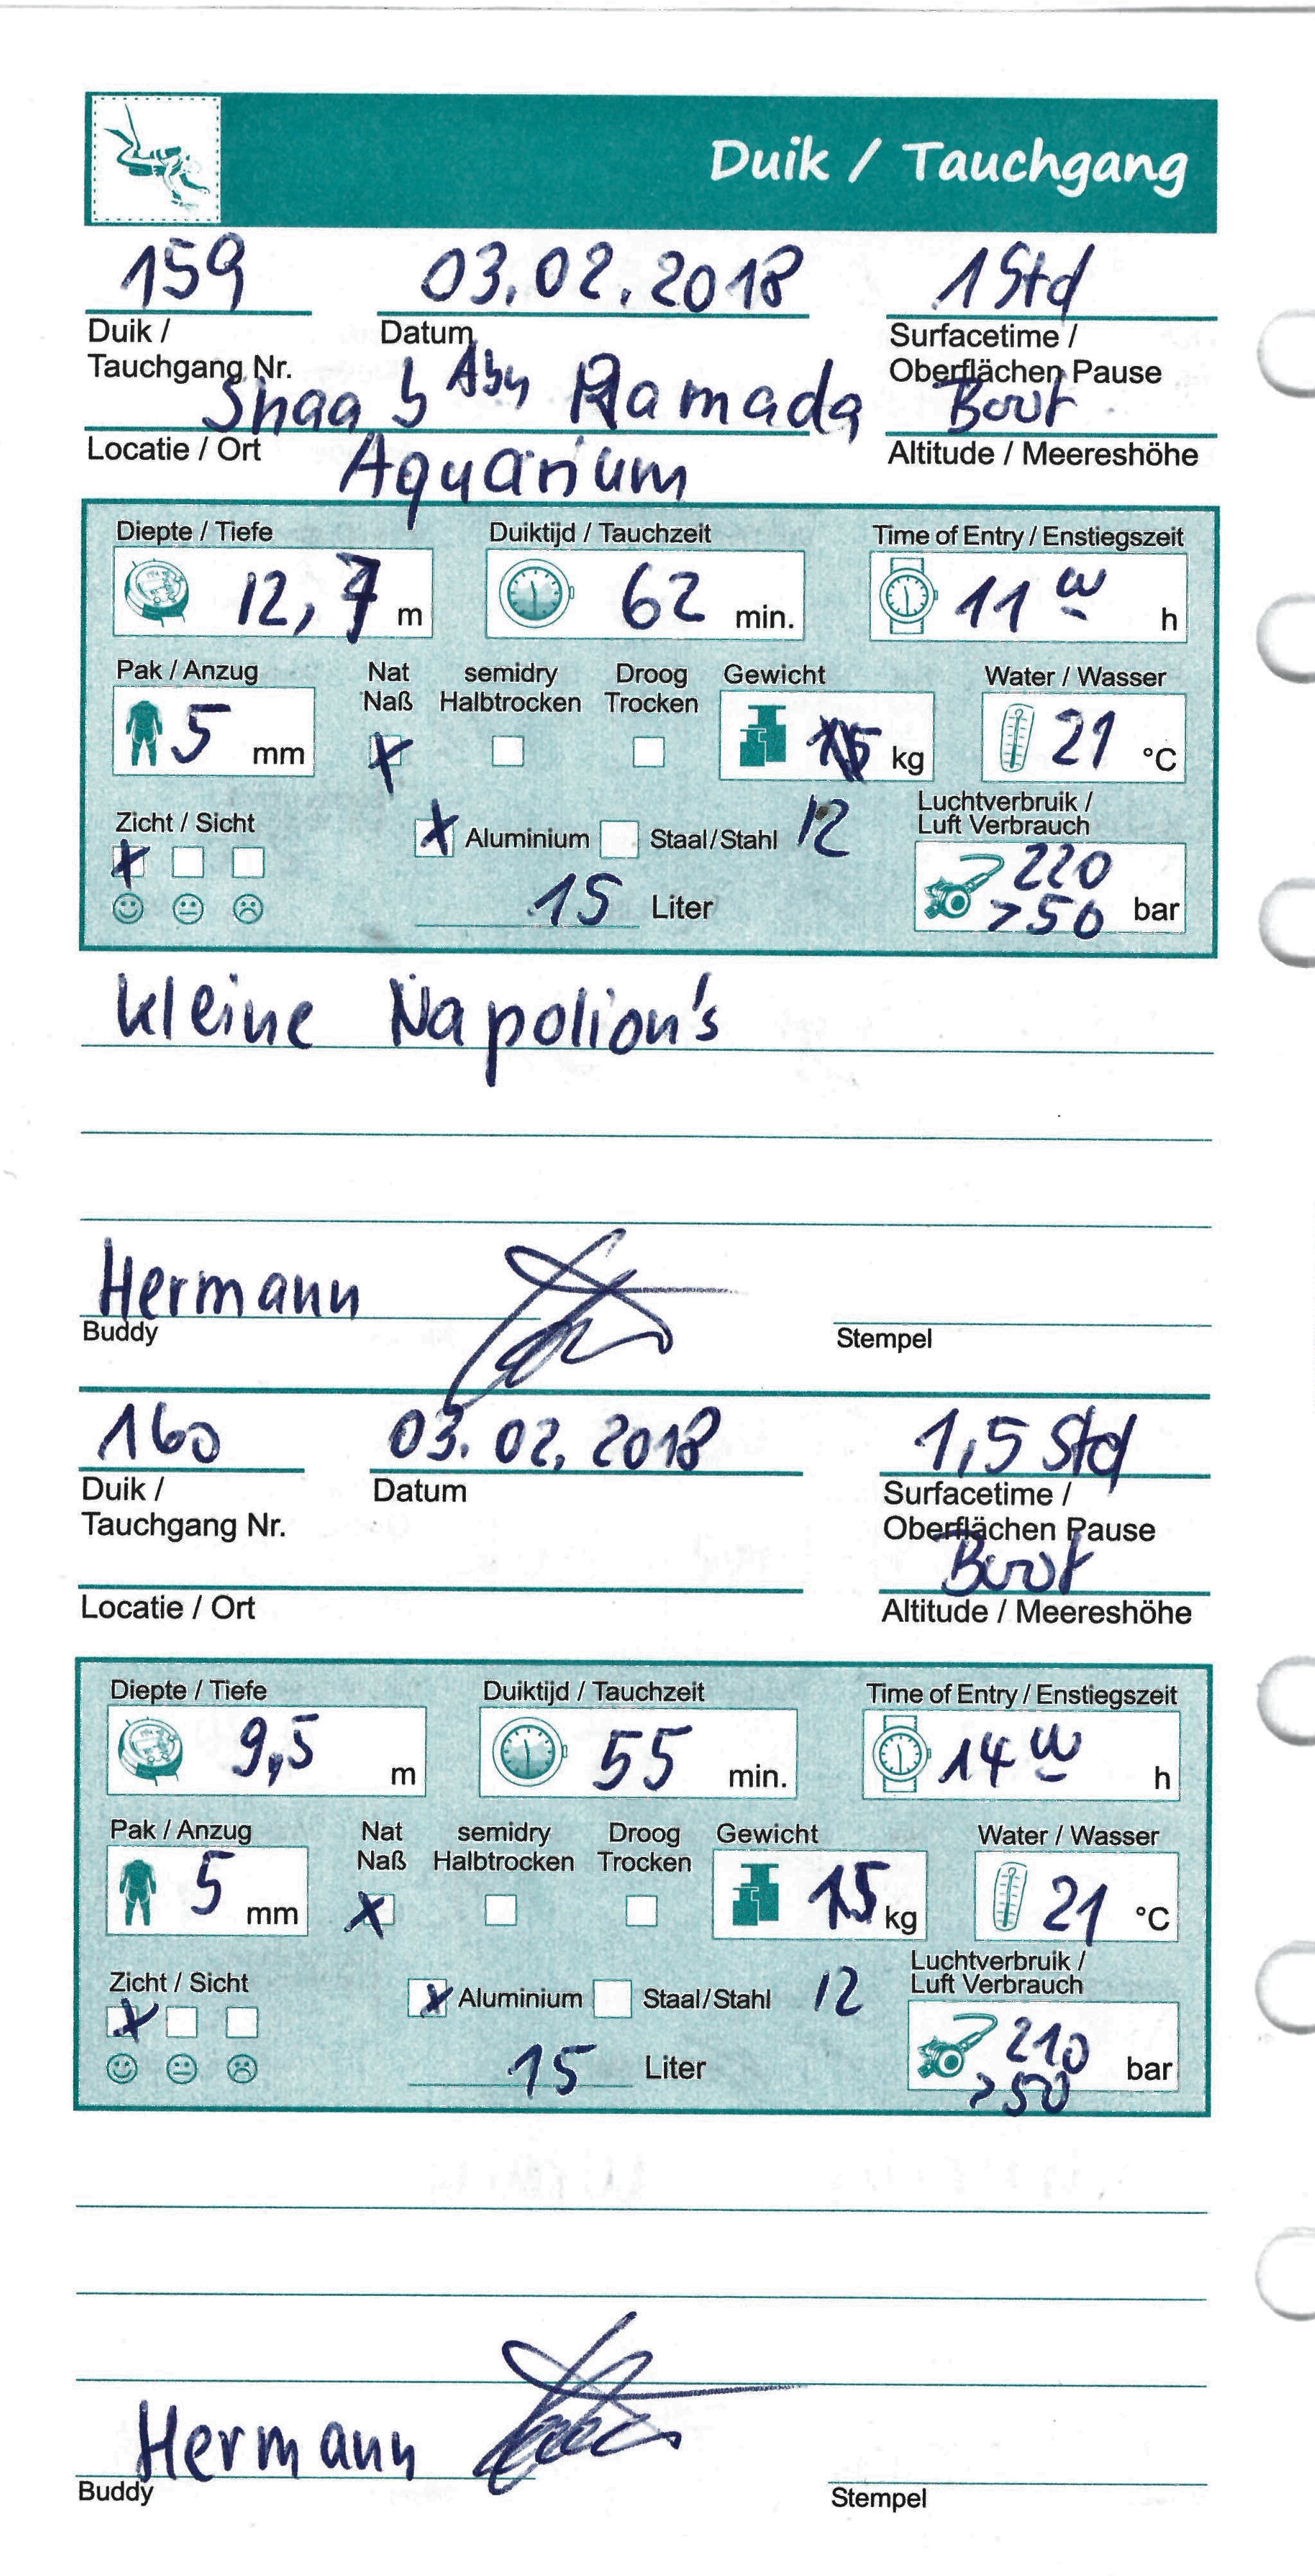 Duik / Tauchgang
159 03.02.2018 1 Std
Duik / Datum Surfacetime /
Tauchgang Nr. Oberflächen Pause
Shaab Abu Ramada Boot
Locatie / Ort Altitude / Meereshöhe
Aquarium
Diepte / Tiefe Duiktijd / Tauchzeit Time of Entry / Enstiegszeit
12,7 m 62 min. 11 00 h
Pak / Anzug Nat semidry Droog Gewicht Water / Wasser
Naß Halbtrocken Trocken
5 mm X kg 21 °C
Zicht / Sicht X Aluminium Staal/Stahl 12 Luchtverbruik /
Luft Verbrauch
X 220
15 Liter >50 bar
kleine Napolion's
Hermann
Buddy Stempel
160 03.02.2018 1,5 Std
Duik / Datum Surfacetime /
Tauchgang Nr. Oberflächen Pause
Boot
Locatie / Ort Altitude / Meereshöhe
Diepte / Tiefe Duiktijd / Tauchzeit Time of Entry / Enstiegszeit
9,5 m 55 min. 14 00 h
Pak / Anzug Nat semidry Droog Gewicht Water / Wasser
Naß Halbtrocken Trocken
5 mm X 15 kg 21 °C
Zicht / Sicht X Aluminium Staal/Stahl 12 Luchtverbruik /
Luft Verbrauch
X 210
15 Liter >50 bar
Hermann
Buddy Stempel